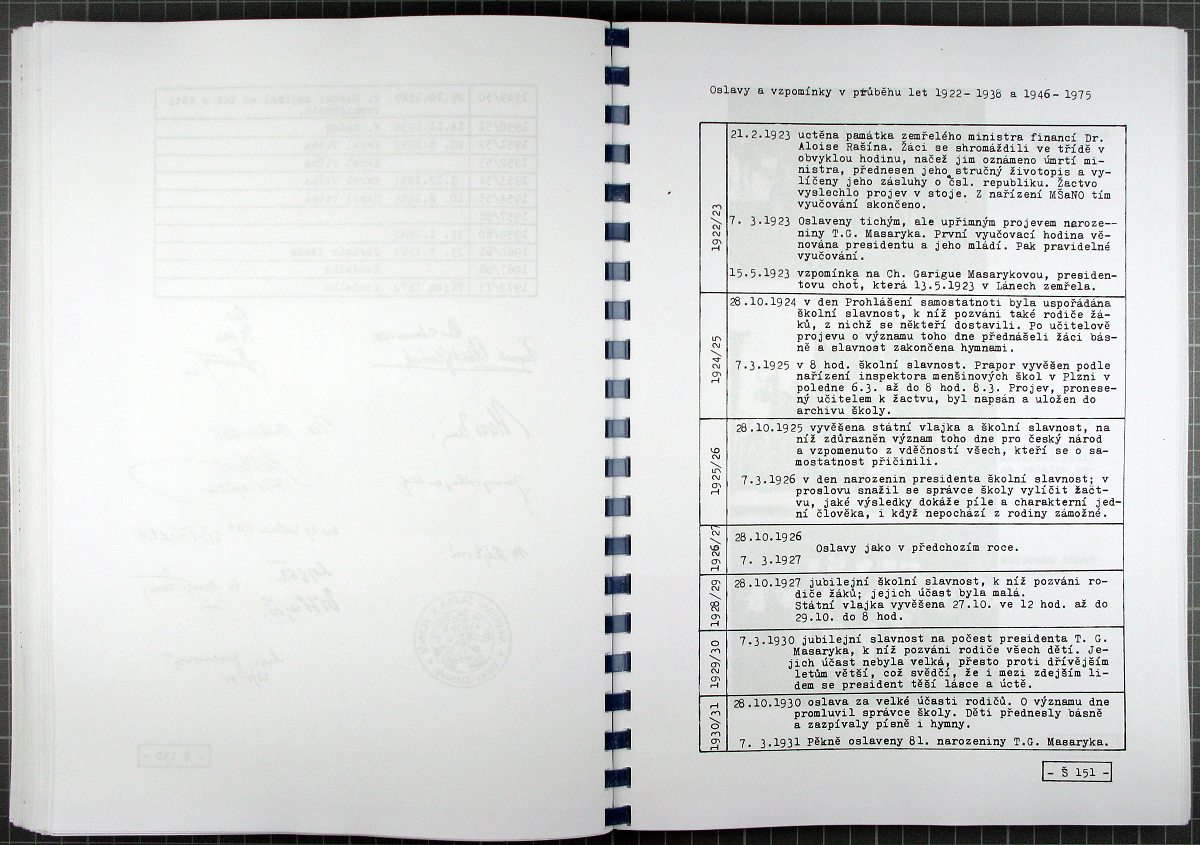 Oslavy a vzpomínky v průběhu let 1922- 1938 a 1946- 1975
1922/23
21.2.1923 uctěna památka zemřelého ministra financí Dr.
Aloise Rašína. Žáci se shromáždili ve třídě v
obvyklou hodinu, načež jim oznámeno úmrtí mi-
nistra, přednesen jeho stručný životopis a vy-
líčeny jeho zásluhy o čsl. republiku. Žactvo
vyslechlo projev v stoje. Z nařízení MŠaNO tím
vyučování skončeno.
7. 3.1923 Oslaveny tichým, ale upřímným projevem naroze--
niny T.G. Masaryka. První vyučovací hodina vě-
nována presidentu a jeho mládí. Pak pravidelné
vyučování.
15.5.1923 vzpomínka na Ch. Garigue Masarykovou, presiden-
tovu choť, která 13.5.1923 v Lánech zemřela.
1924/25
28.10.1924 v den Prohlášení samostatnoti byla uspořádána
školní slavnost, k níž pozváni také rodiče žá-
ků, z nichž se někteří dostavili. Po učitelově
projevu o významu toho dne přednášeli žáci bás-
ně a slavnost zakončena hymnami.
7.3.1925 v 8 hod. školní slavnost. Prapor vyvěšen podle
nařízení inspektora menšinových škol v Plzni v
poledne 6.3. až do 8 hod. 8.3. Projev, pronese-
ný učitelem k žactvu, byl napsán a uložen do
archivu školy.
1925/26
28.10.1925 vyvěšena státní vlajka a školní slavnost, na
níž zdůrazněn význam toho dne pro český národ
a vzpomenuto z vděčností všech, kteří se o sa-
mostatnost přičinili.
7.3.1926 v den narozenin presidenta školní slavnost; v
proslovu snažil se správce školy vylíčit žact-
vu, jaké výsledky dokáže píle a charakterní jed-
ní člověka, i když nepochází z rodiny zámožné.
1926/27
28.10.1926
Oslavy jako v předchozím roce.
7. 3.1927
1928/29
28.10.1927 jubilejní školní slavnost, k níž pozváni ro-
diče žáků; jejich účast byla malá.
Státní vlajka vyvěšena 27.10. ve 12 hod. až do
29.10. do 8 hod.
1929/30
7.3.1930 jubilejní slavnost na počest presidenta T. G.
Masaryka, k níž pozváni rodiče všech dětí. Je-
jich účast nebyla velká, přesto proti dřívějším
letům větší, což svědčí, že i mezi zdejším li-
dem se president těší lásce a úctě.
1930/31
28.10.1930 oslava za velké účasti rodičů. O významu dne
promluvil správce školy. Děti přednesly básně
a zazpívaly písně i hymny.
7. 3.1931 Pěkně oslaveny 81. narozeniny T.G. Masaryka.
- Š 151 -